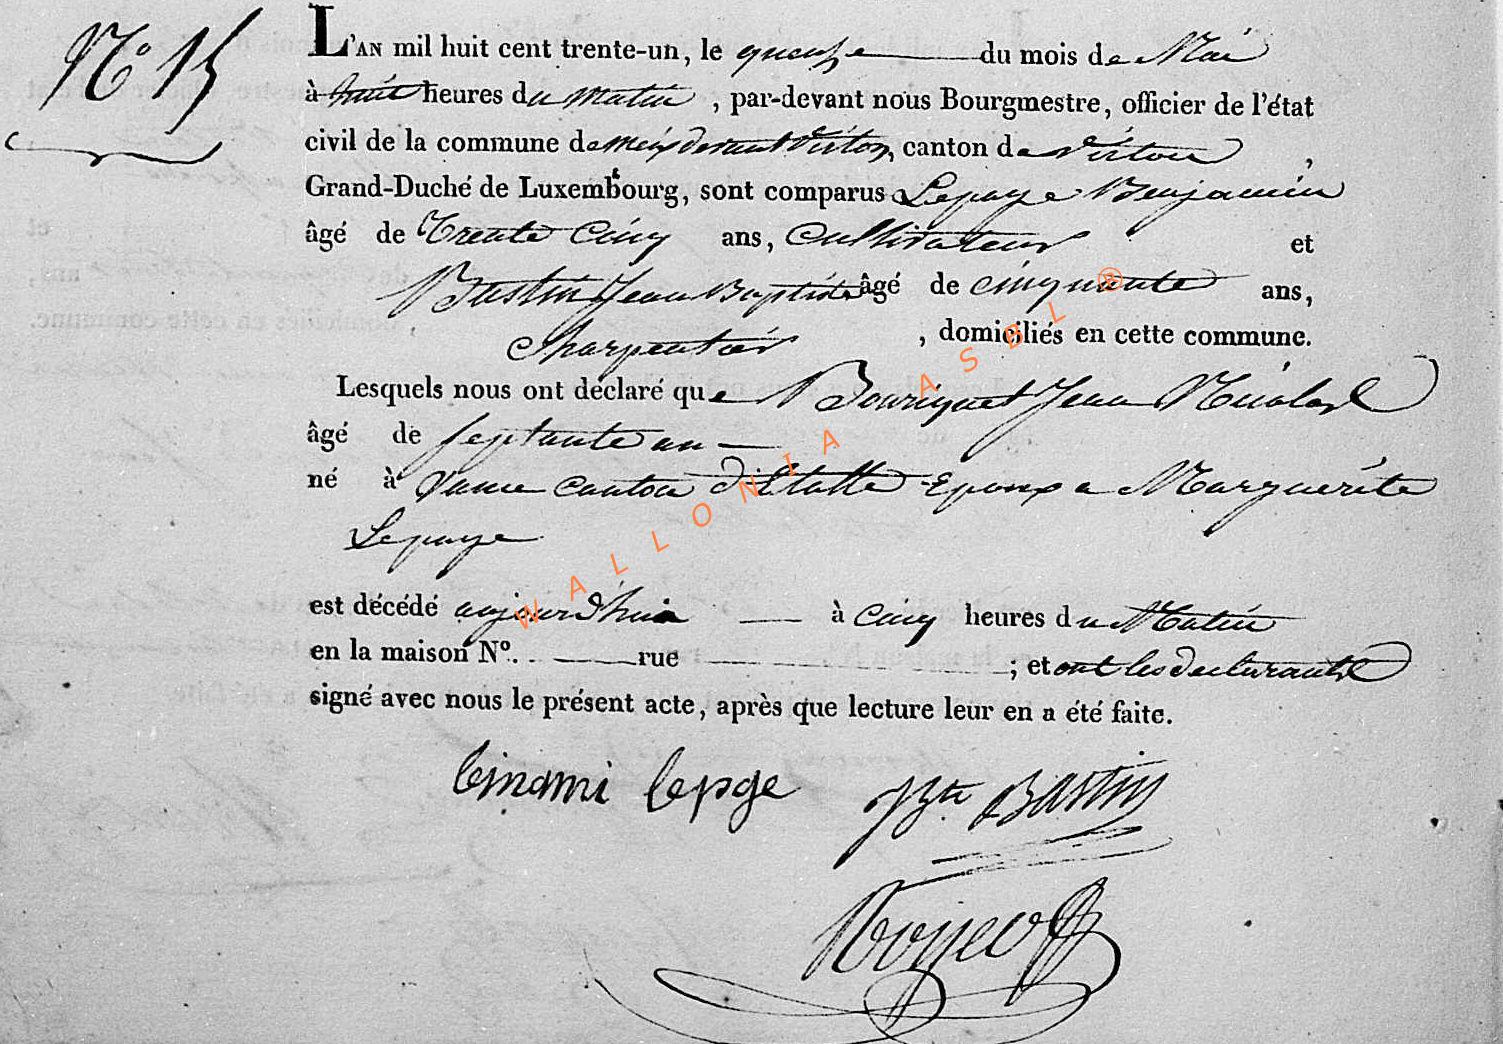 N° 15
L'AN mil huit cent trente-un, le quinze du mois de Mai
à huit heures du matin, par-devant nous Bourgmestre, officier de l'état
civil de la commune de meix devant Virton, canton de Virton,
Grand-Duché de Luxembourg, sont comparus Lepage Benjamin
âgé de Trente Cinq ans, Cultivateur et
Bastin Jean Baptiste âgé de cinquante ans,
Charpentier, domiciliés en cette commune.
Lesquels nous ont déclaré que Bouriquet Jean Nicolas
âgé de septante un
né à canton d'Etalle Epoux a Marguerite
Lepage
est décédé aujourd'hui à cinq heures du Matin
en la maison N°. rue ; et ont les declarants
signé avec nous le présent acte, après que lecture leur en a été faite.
lepge
JBte Bastin
WALLONIA ASBL ®